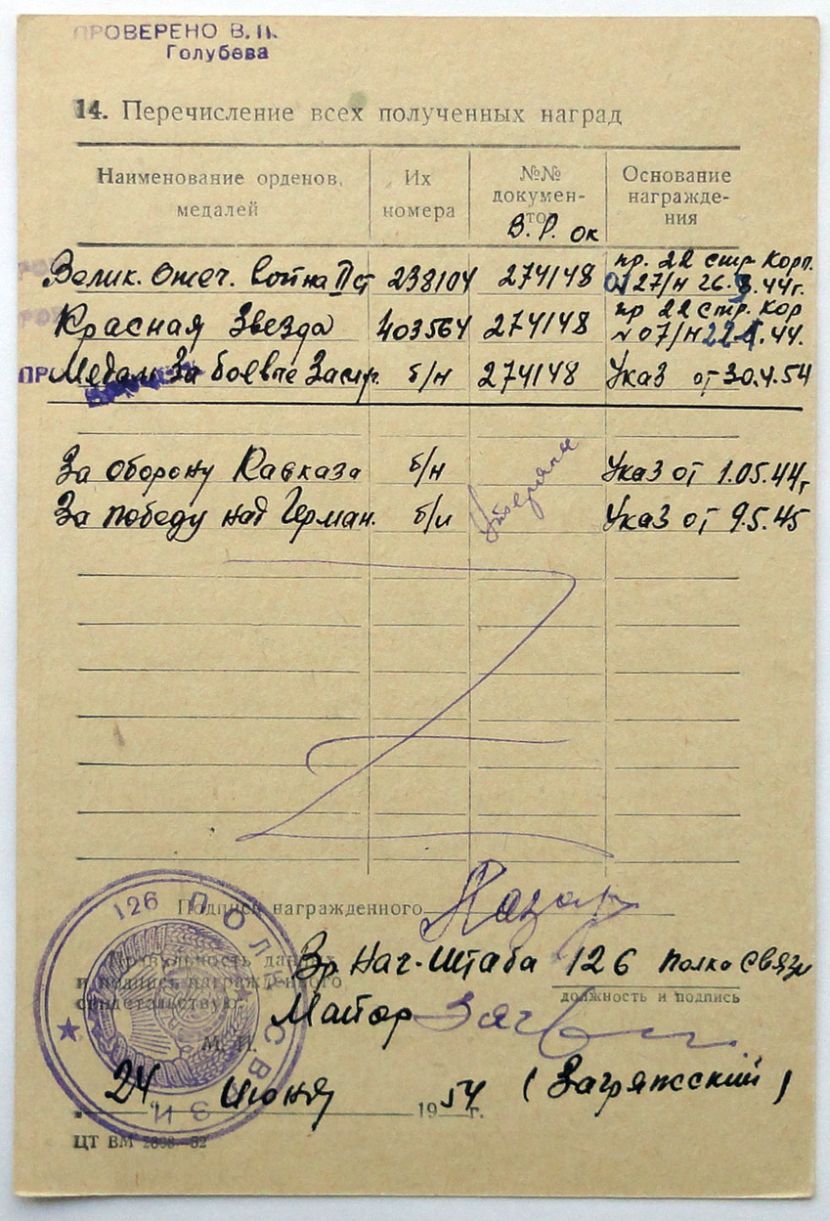 ПРОВЕРЕНО В. П.
Голубева
14. Перечисление всех полученных наград
Наименование орденов, медалей
Их номера
№№ документов
В. Р. ок
Основание награждения
Велик. Отеч. Война II ст 238104 274148 пр. 22 стр. Корп. 0127/н 26.3.44г.
Красная Звезда 403564 274148 пр 22 стр. Кор №07/н 22.1.44.
Медаль За боевые Заслу. б/н 274148 Указ от 30.4.54
За оборону Кавказа б/н Утеряны Указ от 1.05.44г
За победу над Герман. б/н Указ от 9.5.45
Подпись награжденного
Правильность данных и подпись награжденного свидетельствую:
Вр. Нач-Штаба 126 полка связи
должность и подпись
Майор
М. П.
(Загряжский)
24 Июня 1954 г.
ЦТ ВМ
126 ПОЛК СВЯЗИ